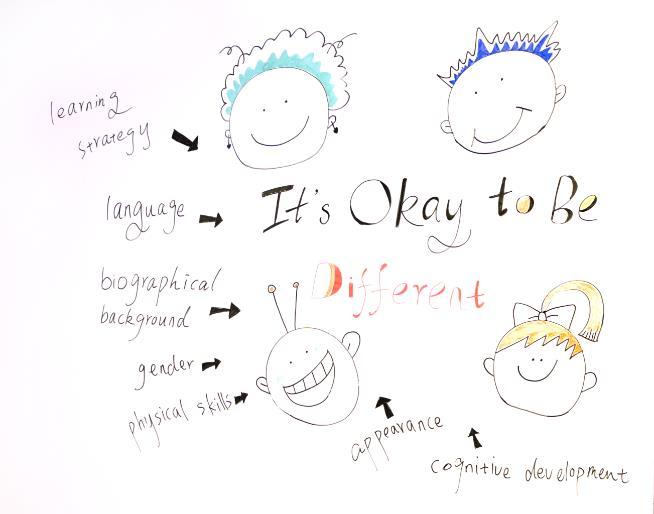 learning
strategy
language
It's Okay to Be
Different
biographical
background
gender
physical skills
appearance
cognitive development